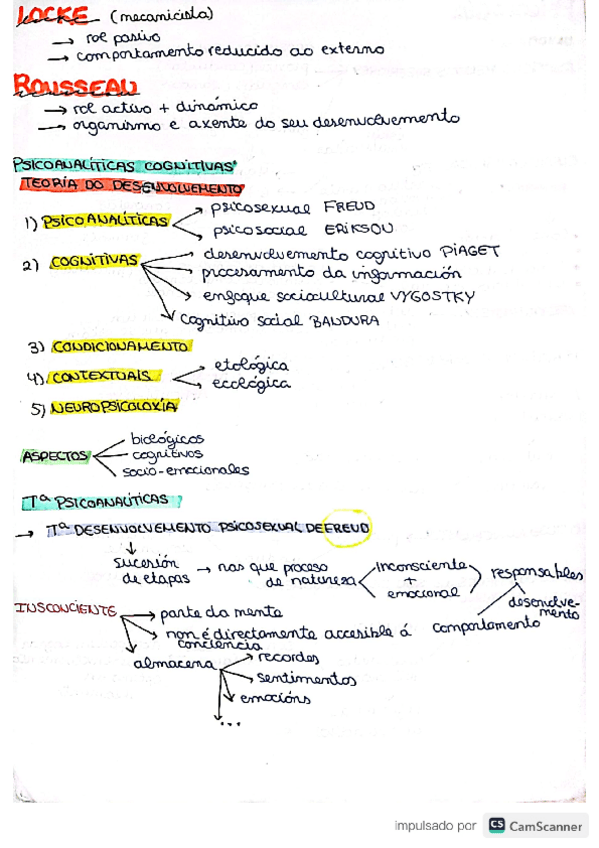 LOCKE (mecanicista)
→ rol pasivo
→ comportamento reducido ao externo
ROUSSEAU
→ rol activo + dinámico
→ organismo e axente do seu desenvolvemento
PSICOANALÍTICAS COGNITIVAS
TEORÍA DO DESENVOLVEMENTO
1) PSICOANALÍTICAS
psicosexual FREUD
psicosocial ERIKSON
2) COGNITIVAS
desenvolvemento cognitivo PIAGET
procesamento da información
enfoque sociocultural VYGOSTKY
cognitivo social BANDURA
3) CONDICIONAMENTO
4) CONTEXTUAIS
etológica
ecológica
5) NEUROPSICOLOXÍA
ASPECTOS
biológicos
cognitivos
socio-emocionales
Tª PSICOANALÍTICAS
→ Tª DESENVOLVEMENTO PSICOSEXUAL DE FREUD
sucesión de etapas → nas que proceso de natureza
inconsciente + emocional
responsables
desenvolve-
mento
comportamento
INSCONCIENTE
→ parte da mente
non é directamente accesible á
conciencia
almacena
→ recordos
→ sentimentos
emocións
...
Impulsado por CS CamScanner